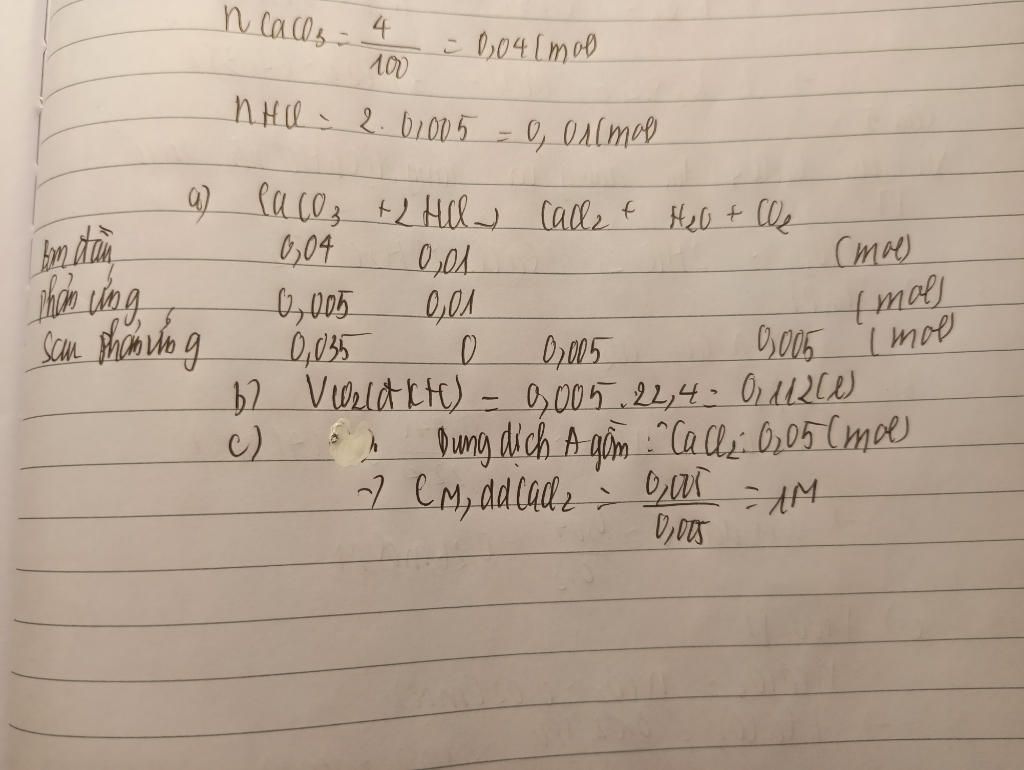 nCaCO3 = 4/100 = 0,04 (mol)
nHCl = 2. 0,005 = 0,01 (mol)
a) CaCO3 + 2 HCl → CaCl2 + H2O + CO2
Ban đầu 0,04 0,01 (mol)
phản ứng 0,005 0,01 (mol)
sau phản ứng 0,035 0 0,005 0,005 (mol
b) VCO2(đktc) = 0,005 .22,4 = 0,112(l)
c) Dung dịch A gồm : CaCl2: 0,05 (mol)
→ CM, ddCaCl2 = 0,005/0,005 = 1M